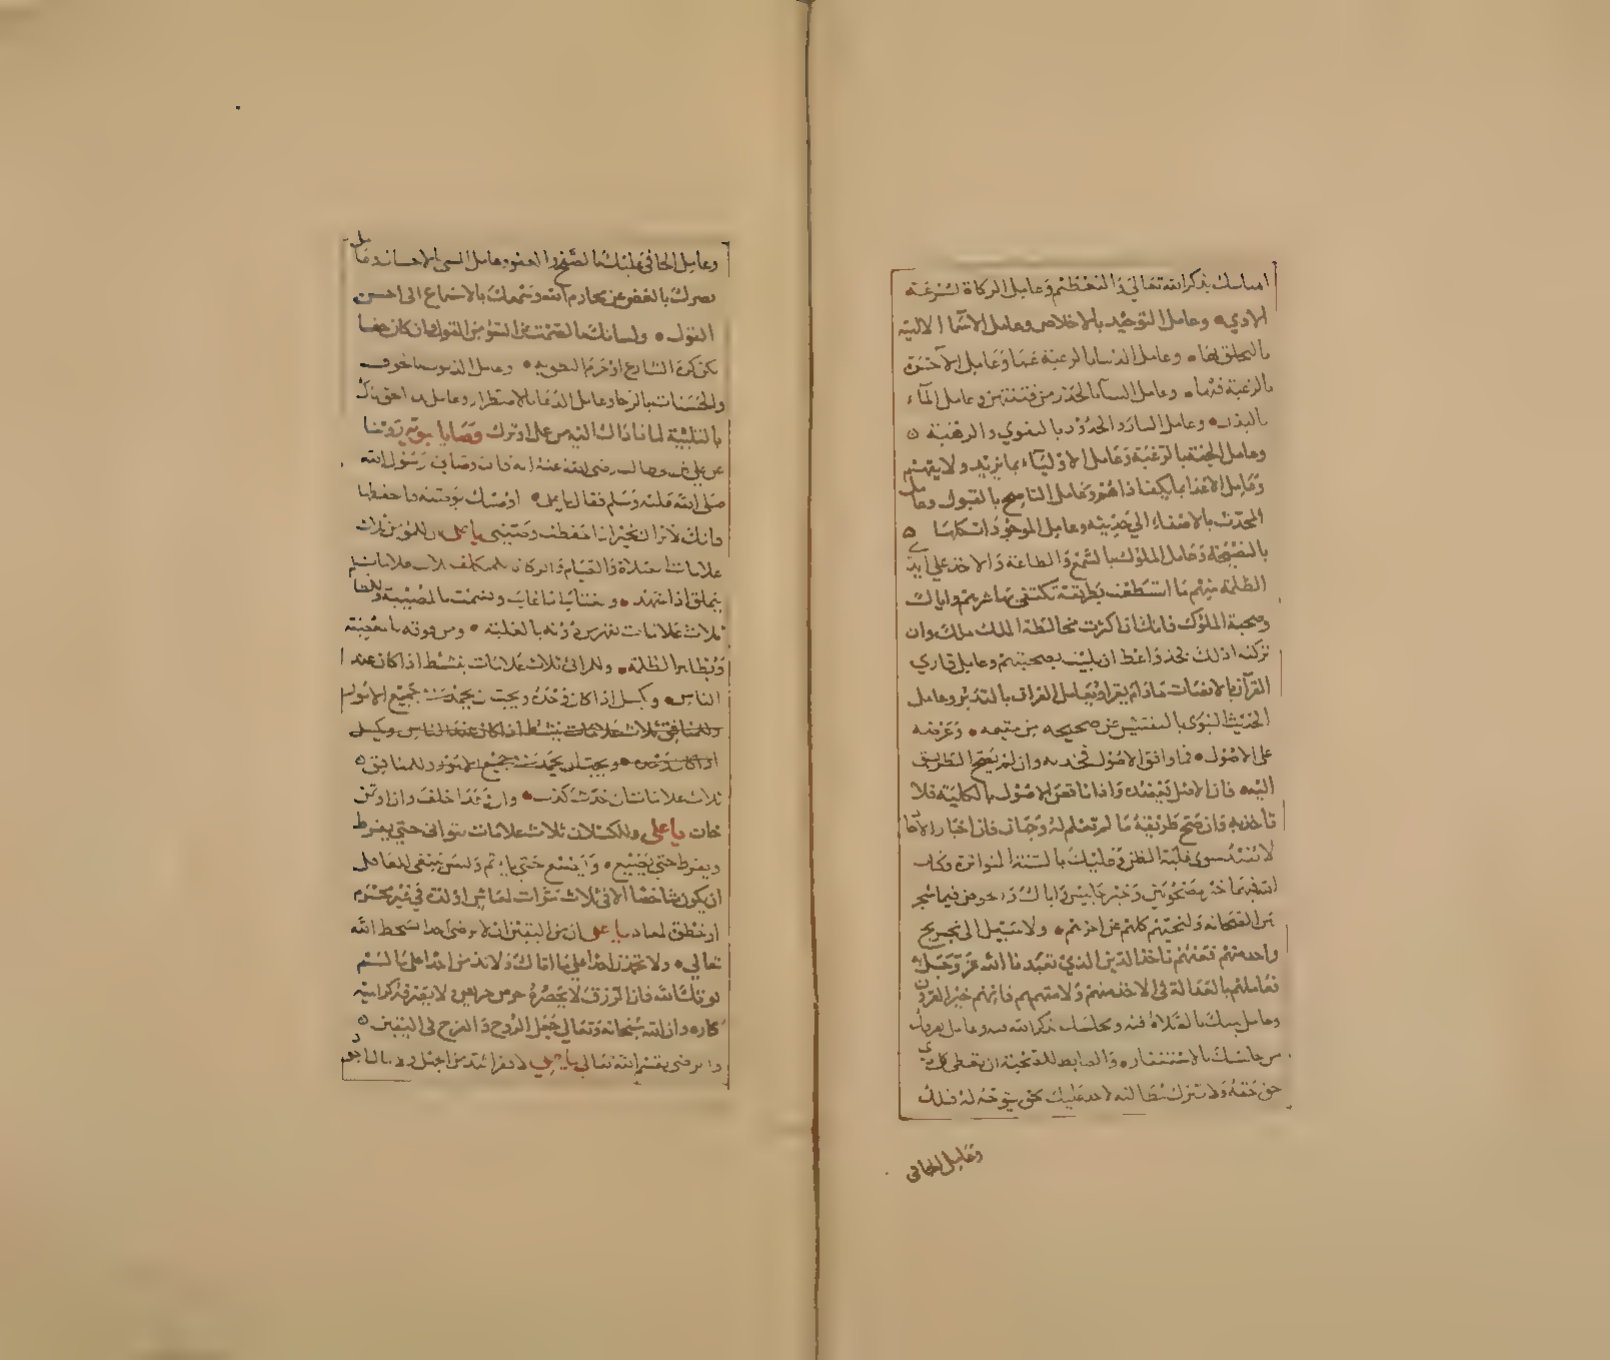 امساسك بذكر الله تعالى والتعظيم وعامل الزكاة لسرعة
الادي وعامل التوحيد بالاخلاص وعامل الاسما الالهية
بالتخلق بها وعامل الدنيا بالرغبة عنها وعامل الآخرة
بالرغبة فيها وعامل النسا بالحذر من فتنتهن وعامل المآء
بالبذل وعامل النار والحدود بالتقوي والرهبة
وعامل الجنة بالرغبة وعامل الاوليآء بما يزيد ولا ينقصهم
وعامل الاعدا بما يكف اذاهم وعامل الناصح بالقبول وعامل
المحدث بالاصغاء الي حديثه وعامل الموجودات كلها
بالنصيحة وعامل الملوك بالسمع والطاعة والاخذ علي ايدي
الظلمة منهم ما استطعت بطريقة تكتفي بها شرهم واياك
وصحبة الملوك فانك ان اكثرت مخالطة الملك ملك وان
تركته اذلك فخذ واعط ان بليت بصحبتهم وعامل قاري
القرآن بالانصات ما دام يقرا وعامل القران بالتدبر وعامل
الحديث النبوي بالتفتيش عن صحيحه من سقيمه وعرضه
على الاصول فما وافق الاصول فخذ به وان لم يصح الطريق
اليه فان الاصل يعضده واذا ناقض الاصول بالكلية فلا
تاخذ به وان صح طريقه ما لم تعلم له وجها فان اخبار الآحاد
لا تفيد سوى غلبة الظن وعليك بالسنة المتواترة وكتاب
الله فهما خير مصحوبين وخير جليس واياك والخوض فيما شجر
بين الصحابة ولتحبهم كلهم عن اخرهم ولا سبيل الى تجريح
واحد منهم فعنهم ناخذ الدين الذي تعبدنا الله عز وجل به
فعاملهم بالعدالة في الاخذ منهم ولا تتهمهم فانهم خير القرون
وعامل بيتك بالصلاة فيه ومجلسك بذكر الله فيه وعامل
من جلسك بالاستغفار والضابط للصحبة ان تعطي كل ذي
حق حقه ولا تترك مطالبة لاحد عليك بحق يتوجه له قبلك
وعامل الجاني
وعامل الجاني عليك بالصفح والعفو وعامل المسي بالاحسان وعامل
بصرك بالغض عن محارم الله وسمعك بالاستماع الى احسن
القول ولسانك بالصمت عن السوء من القول وان كان حقا
لكن كره الشارع او حرم النطق به وعامل الذنوب بالخوف
والحسنات بالرجا وعامل الدعا بالاضطرار وعامل
بالتلبية لما ناداك اليه من عمل او ترك وصايا نبوية روينا
عن علي بن ابي طالب رضي الله عنه انه قال وصاني رسول الله
صلى الله عليه وسلم فقال يا علي اوصيك بوصية فاحفظها
فانك لا تزال بخير ما حفظت وصيتي يا علي ان للمؤمن ثلاث
علامات الصلاة والصيام والزكاة وللمتكلف ثلاث علامات
يتملق اذا شهد ويغتاب اذا غاب ويشمت بالمصيبة وللظالم
ثلاث علامات يقهر من دونه بالغلبة ومن فوقه بالمعصية
ويظاهر الظلمة وللمرائي ثلاث علامات ينشط اذا كان عند
الناس ويكسل اذا كان وحده ويحب ان يحمد في جميع الامور
وللمنافق ثلاث علامات ينشط اذا كان عند الناس ويكسل
اذا كان وحده ويحب ان يحمد في جميع الامور وللمنافق
ثلاث علامات ان حدث كذب وان وعد اخلف وان اؤتمن
خان يا علي وللكسلان ثلاث علامات يتوانى حتى يفرط
ويفرط حتى يضيع ويضيع حتى ياثم وليس ينبغي للعاقل
ان يكون شاخصا الا في ثلاث مرات لمعاش او لذة في غير محرم
او خطوة لمعاد يا علي ان من اليقين ان لا ترضي احدا بسخط الله
تعالى ولا تحمدن احدا على ما اتاك ولا تذمن احدا على ما لم
يؤتك الله فان الرزق لا يجره حرص حريص ولا يصرفه كراهية
كاره وان الله سبحانه وتعالى جعل الروح والفرح في اليقين
والرضى بقسم الله تعالى يا علي لا فقر اشد من الجهل ولا مال اجود